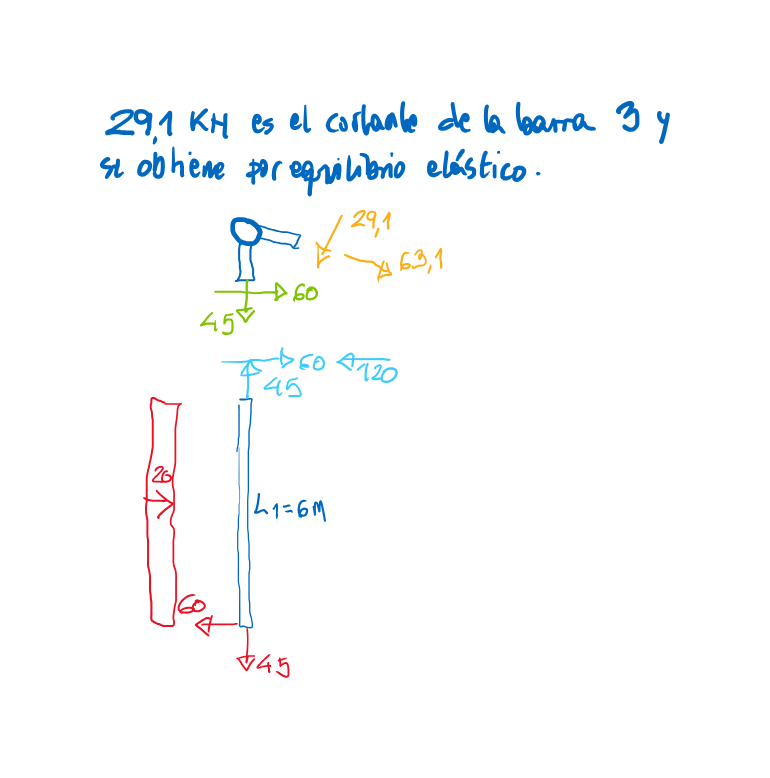 29,1 KN es el cortante de la barra 3 y
se obtiene por equilibrio elástico.
29,1
63,1
60
45
60 120
45
20
L1=6M
60
45